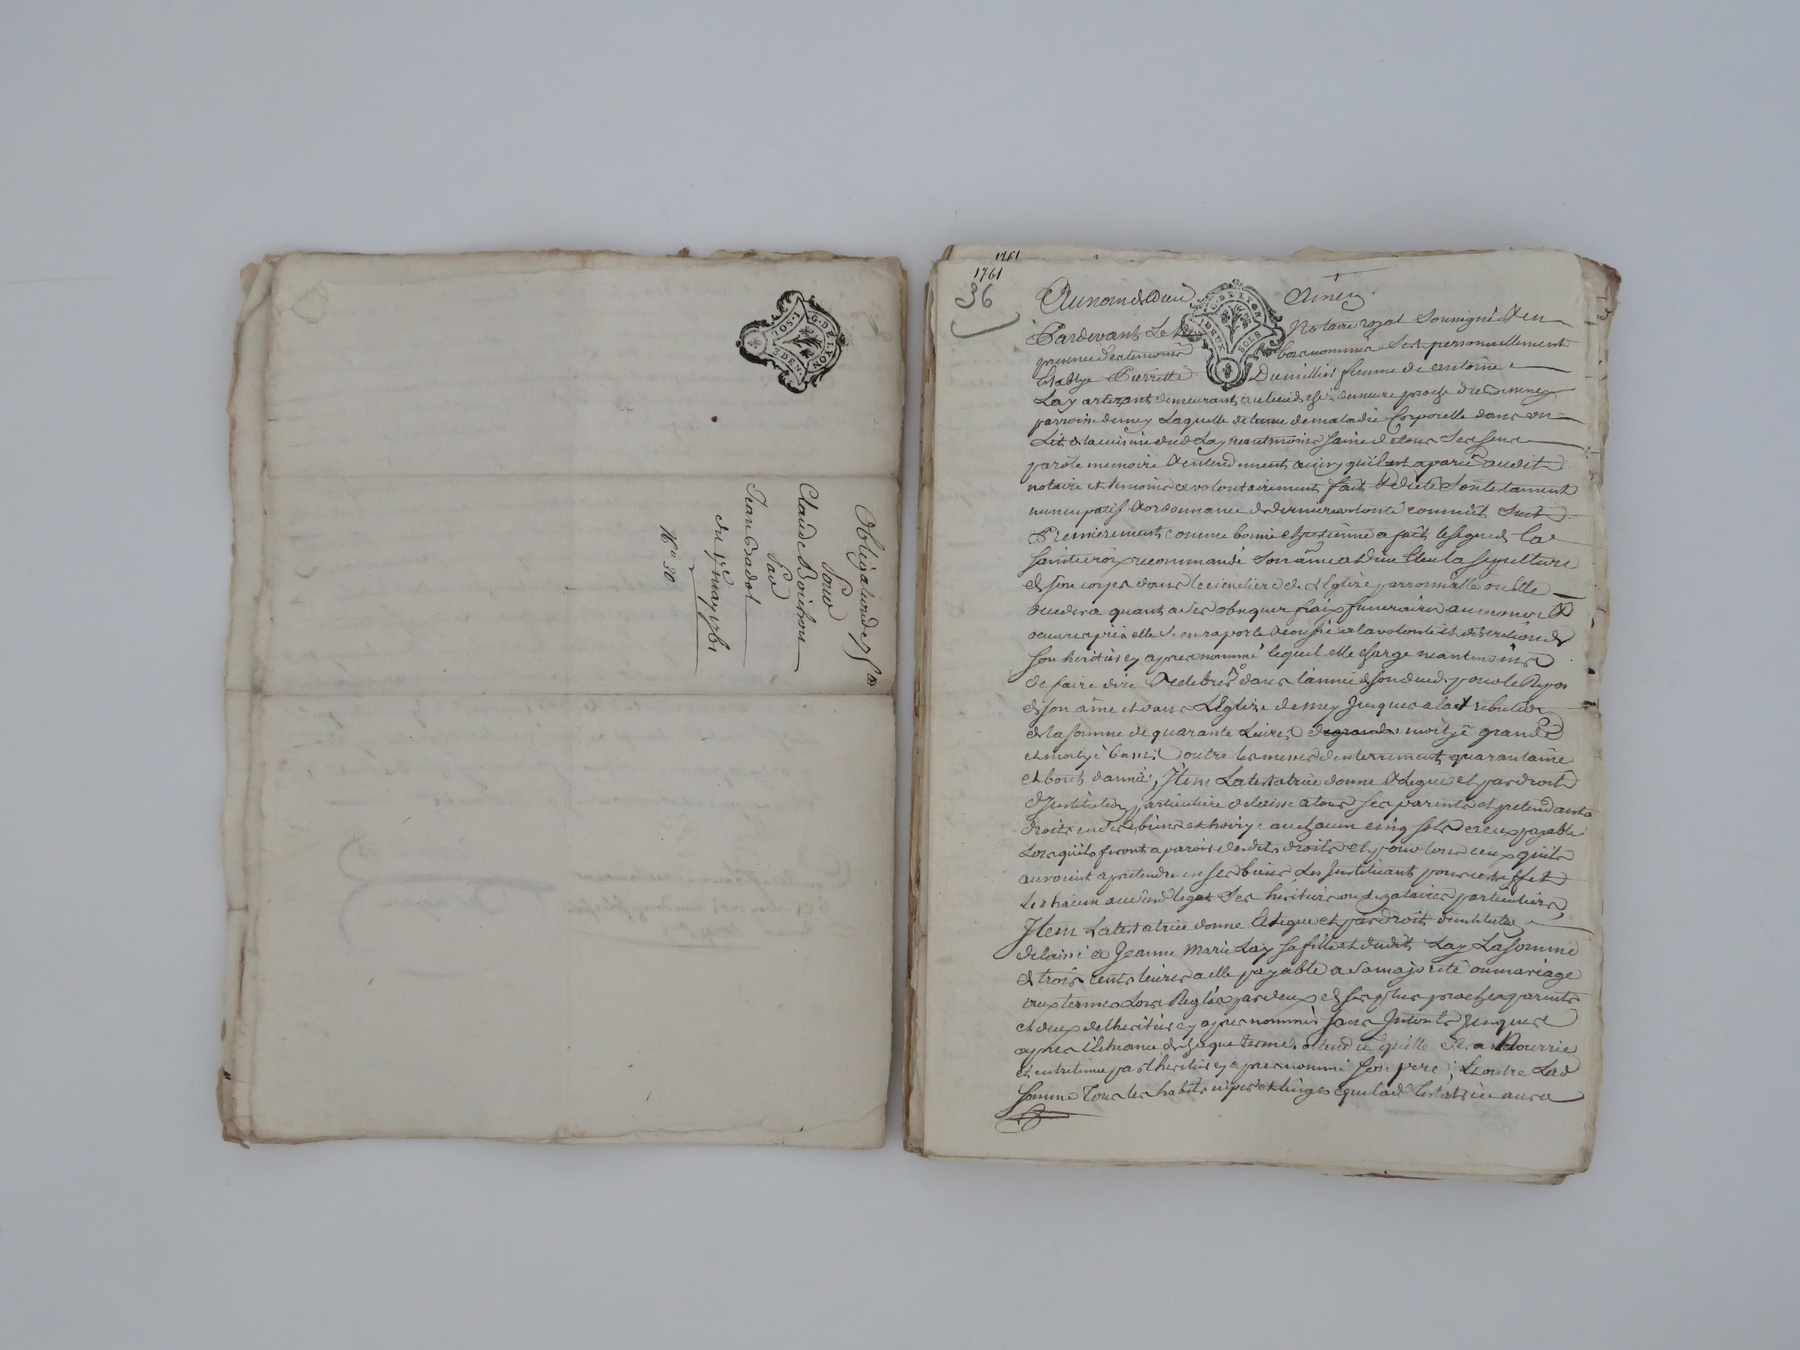 G. DE LYON
1. SOL
3 DEN.
Obligation de
Pour
Claude Boichon
Sur
Jean Badol
du 17e may 1761
No 30
1761
1761
36
Au nom de Dieu Amen
Pardevant Le Notaire royal Soussigné & en
G. DE LYON
DEUX SOLS
presence des temoins bas nommés Est personnellement
Etablye Pierrette Dumillier femme de antoine
Lay artisant demeurant au lieu de
parroisse de mey Laquelle detenue de maladie Corporelle dans un
Lit de la cuisine dud Lay neantmoins saine de tous Ses Sens
parole memoire & entendement ainsy qu'il est aparû audit
notaire et temoins a volontairement fait & dicté Son testament
nuncupatif & ordonnance de derniere volonté comme S'ensuit
Premierement comme bonne chretienne a fait le signe de la
Sainte croix recommandé Son ame a Dieu Eleu la sepulture
de son corps dans le cimetiere de l'Eglise parroissialle ou elle
decedera quant a ses obseques fraix funeraires aumones &
oeuvres pies elle S'en raporte & confie a la volonté et discretion de
Son heritier cy apres nommé lequel elle charge neantmoins
de faire dire & celebrer dans l'année de son deceds pour le Repos
de son ame et dans L'Eglise de mey Jusques a la retribution
de la somme de quarante Livres de grandes moitié grandes
et moityé basses outre les messes d'enterrement quarantaine
et bout d'année, Item La testatrice donne & Legue et par droit
d'Institution particuliere delaisse a tous ses parents et pretendants
droits en Ses biens et hoirye a chacun cinq sols a eux payable
Lorsqu'ils feront aparoir desdits droits et pour tous ceux qu'ils
auroient a pretendre en ses biens Les Instituant pour cet effet
Les chacun aud legat Ses heritiers ou Legataires particuliers
Item La testatrice donne & Legue et par droit d'institution
delaisse a Jeanne Marie Lay sa fille et dudit Lay La somme
de trois cents livres a elle payable a sa majorité ou mariage
aux termes Lors Reglés par deux de ses plus proches parents
et deux de l'heritier cy apres nommé sans Interets Jusques
apres l'Echeance de chaque terme attendu qu'elle sera Nourrie
et entretenue par l'heritier cy apres nommé Son pere; Et outre Lad
Somme Tous les habits nipes et linges que lad Testatrice aura